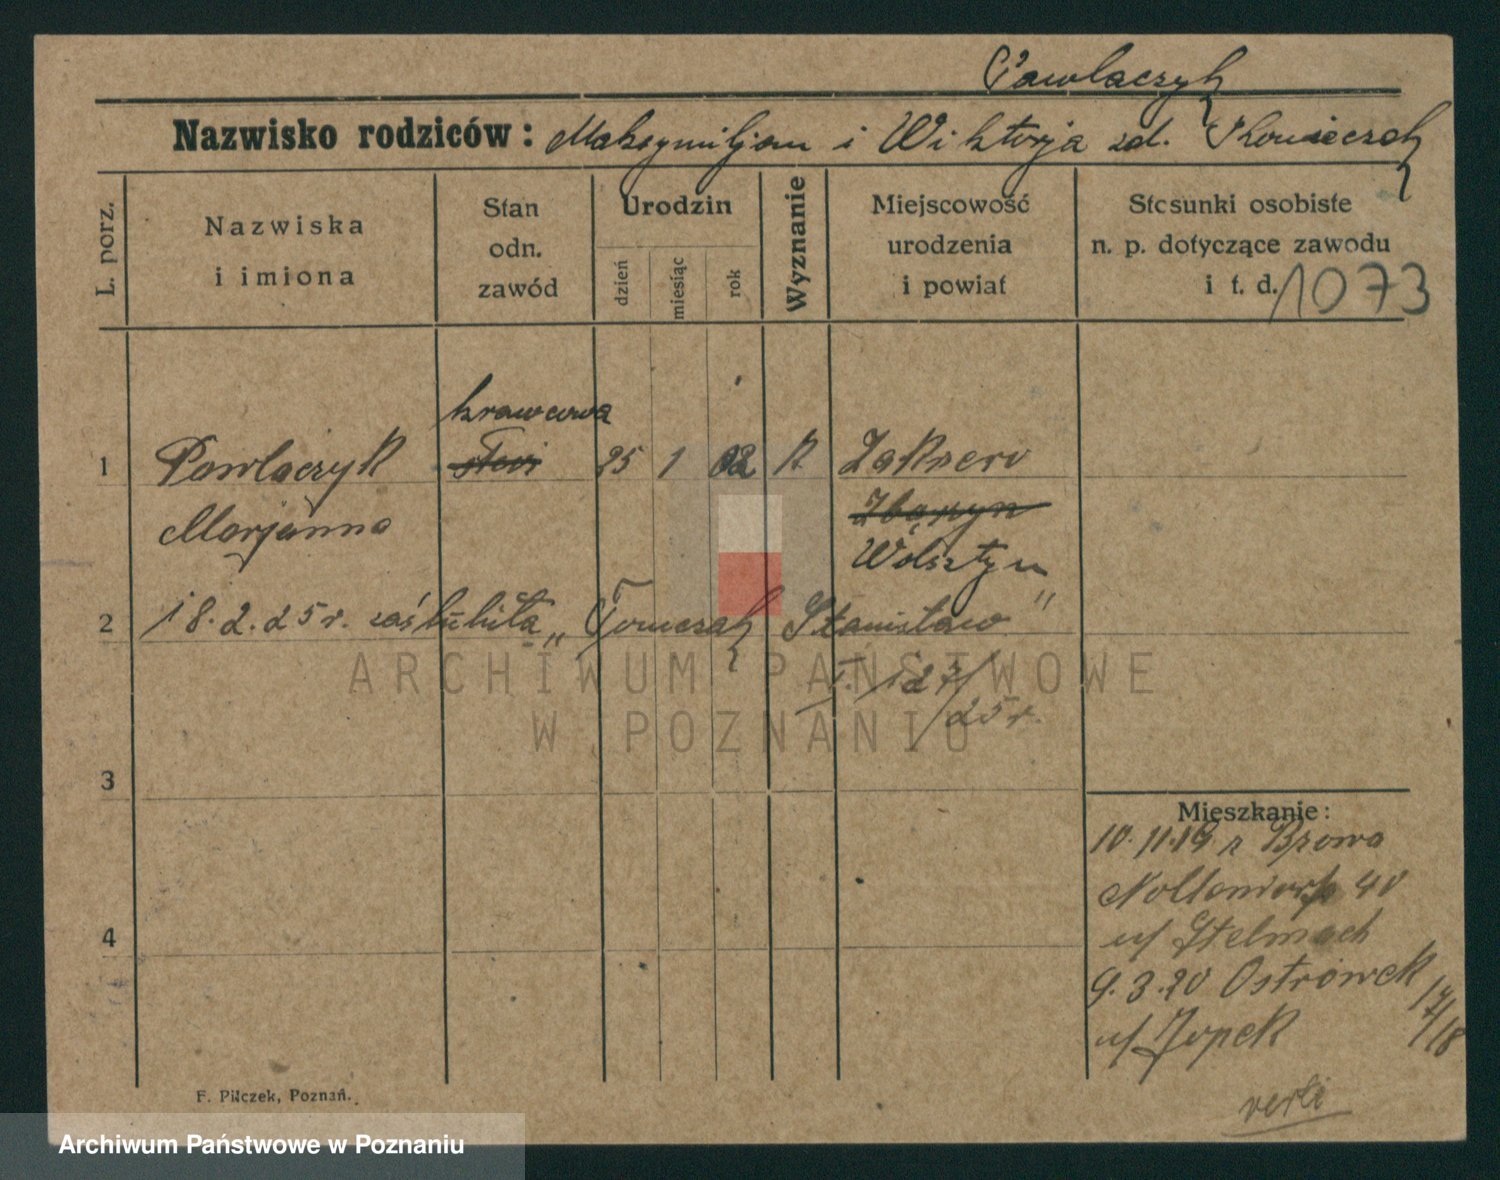 Pawlaczyk
Nazwisko rodziców: Maksymiljan i Wiktorja zd.
L. porz.
Nazwiska
i imiona
Stan
odn.
zawód
Urodzin
dzień
miesiąc
rok
Wyznanie
Miejscowość
urodzenia
i powiat
Stosunki osobiste
n. p. dotyczące zawodu
i t. d.
1073
krawcowa
1 Pawlaczyk 25 1 02 k.
Marjanna
Zbąszyn
Wolsztyn
2 18.2.25 r. zaślubiła „Tomczak Stanisław"
T. 127/25 r.
3
Mieszkanie:
10.11.19 r
40
u/ Stelmach
4
9.3.20 Ostrówek 17/18
u/ Jopek
F. Pilczek, Poznań.
verti
ARCHIWUM PAŃSTWOWE
W POZNANIU
Archiwum Państwowe w Poznaniu